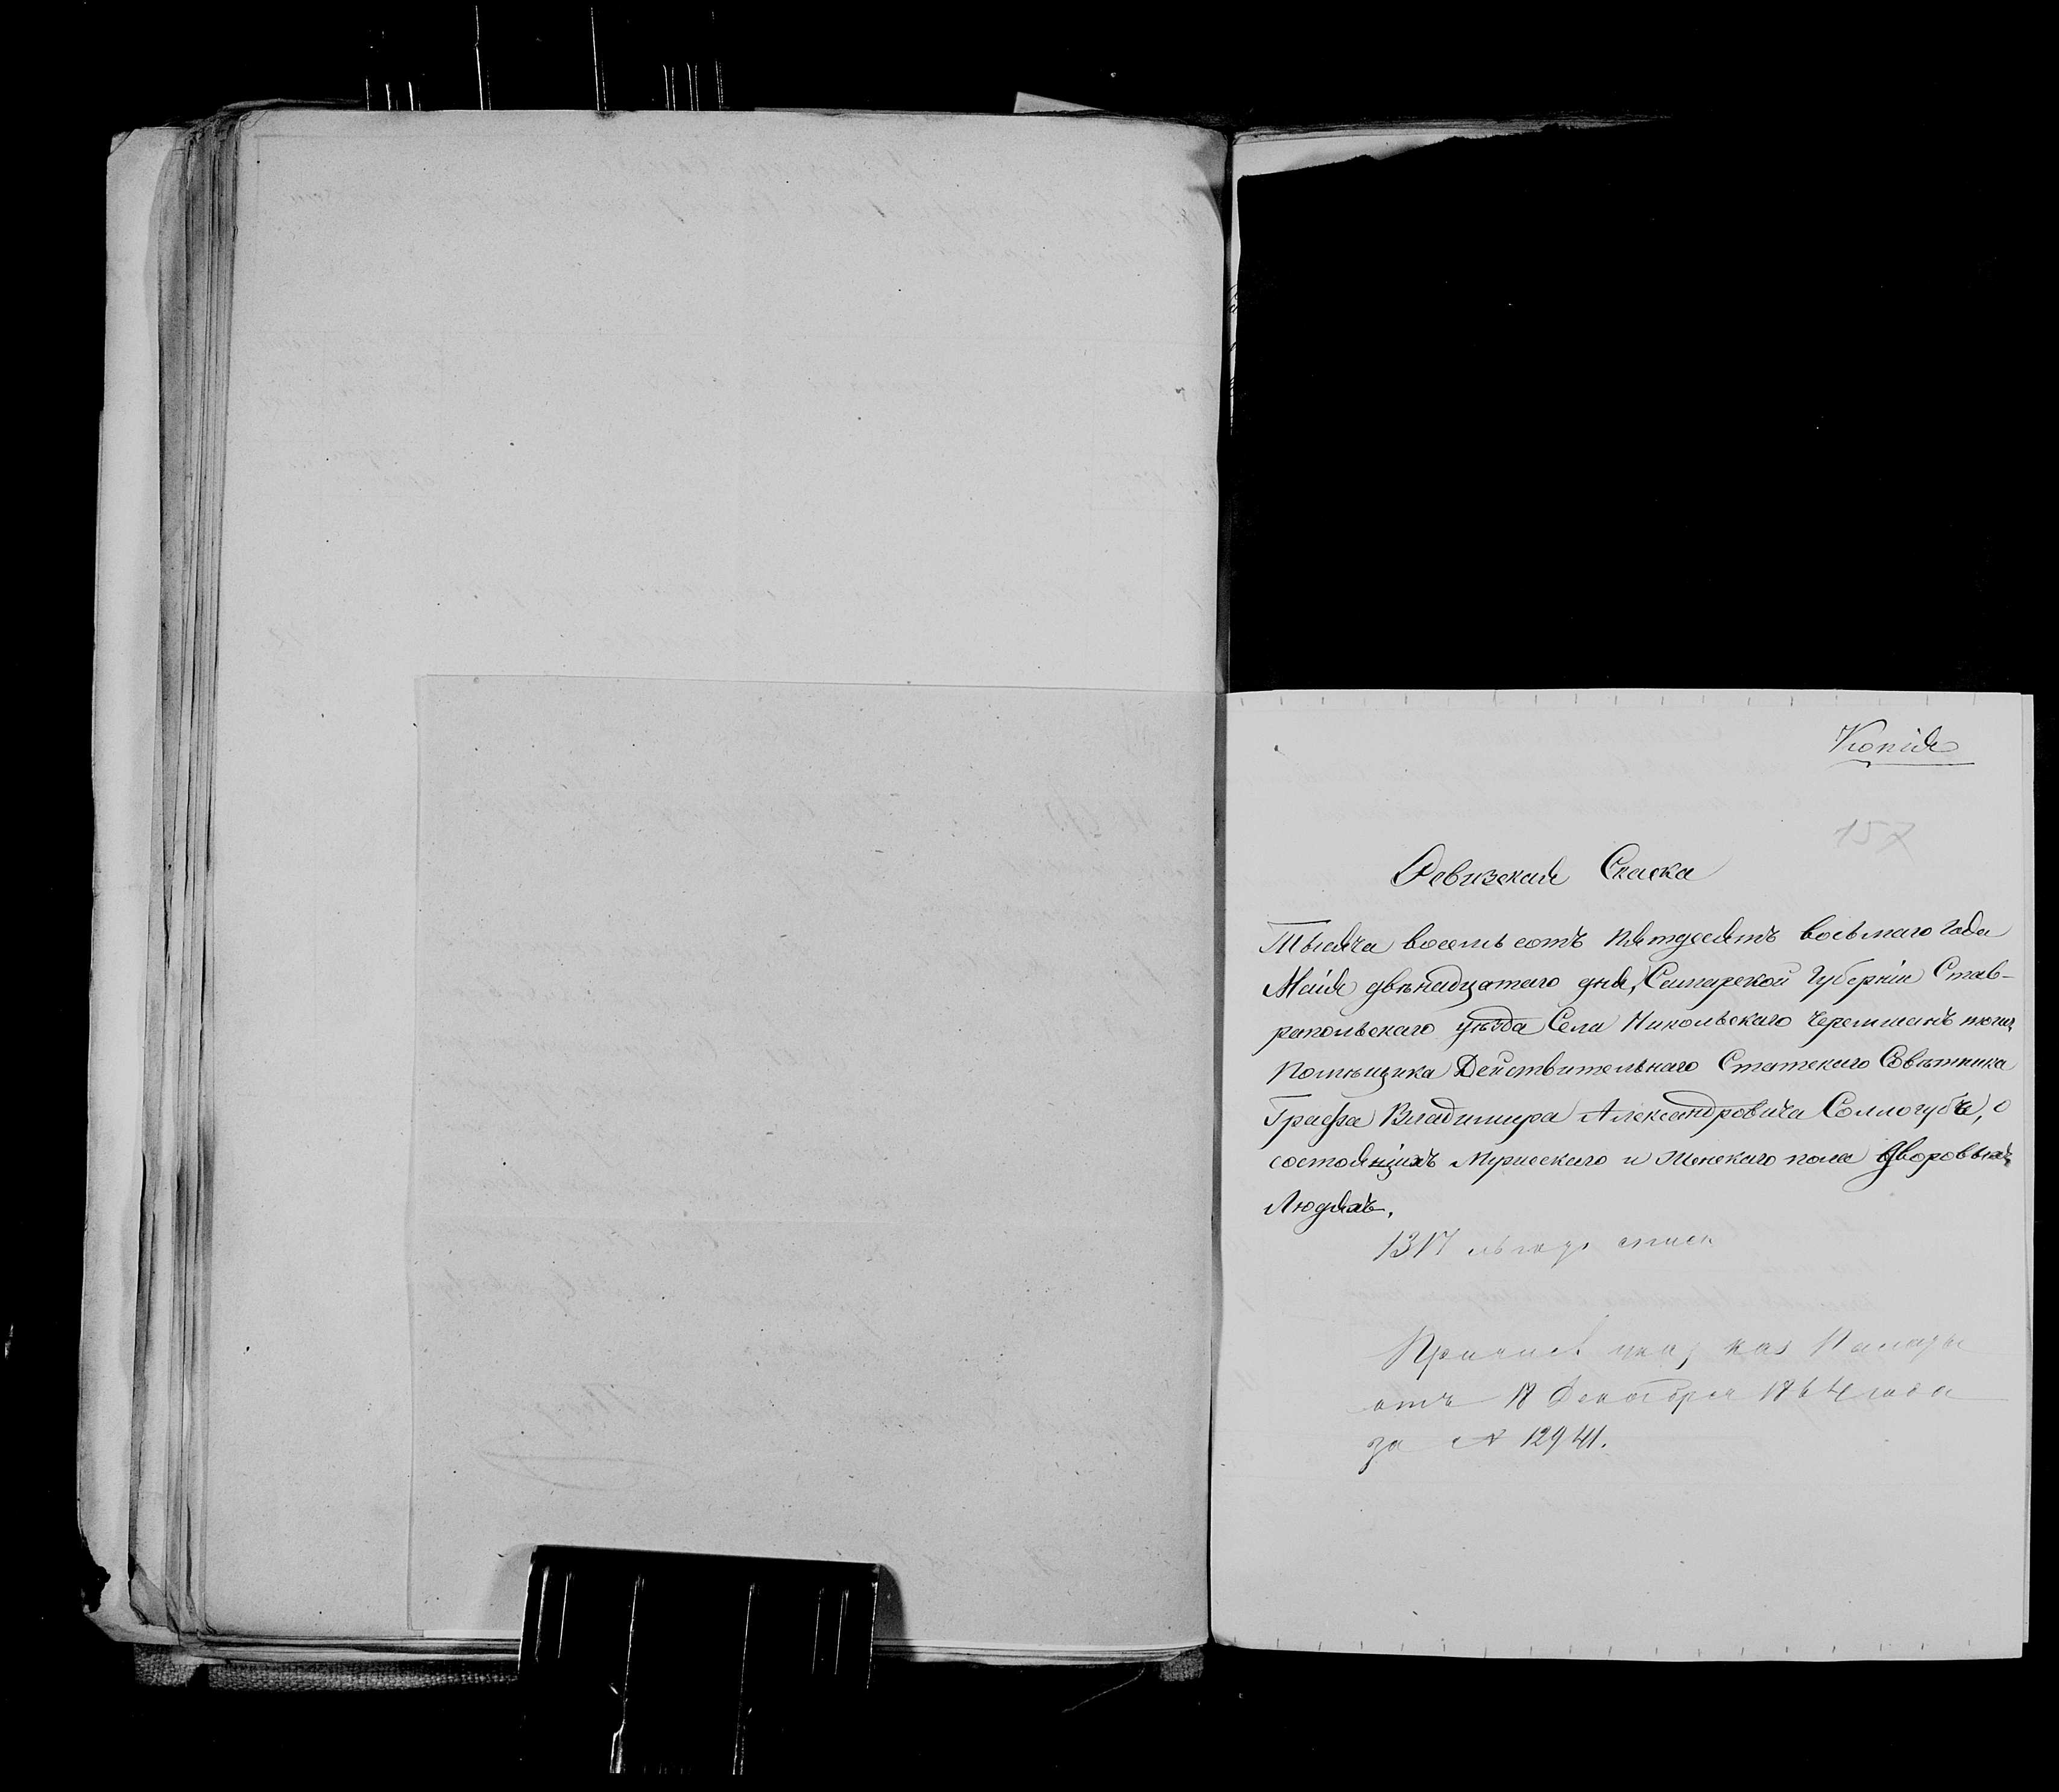 Копія
157
Ревизская Сказка
Тысяча восемь сотъ пятдесятъ восьмаго года
Маія двѣнадцатаго дня, Самарской Губерніи Став-
рапольскаго уѣзда Села Никольскаго Черемшанъ тожъ
Помѣщика Действительнаго Статскаго Совѣтника
Графа Владимира Александровича Соллогуба, о
состоящихъ Мужескаго и Женскаго пола дворовыхъ
Людяхъ.
1317
Причисл указ каз Палаты
отъ 18 Декабря 1864 года
за № 12941.